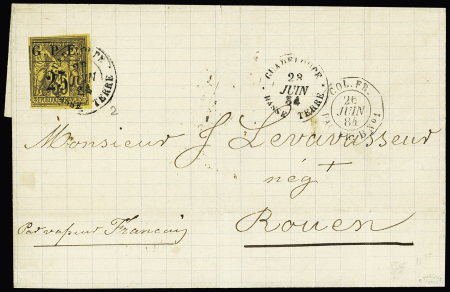 G P E
25
COL. FR.
JUIN
TERRE
GUADELOUPE
28
JUIN
84
BASSE TERRE
COL. FR.
26
JUIN
84
2
Monsieur J Levavasseur
nég^t
Rouen
Par vapeur Français